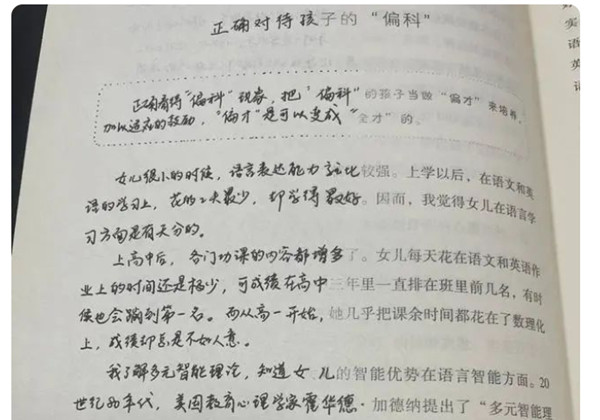 正确对待孩子的“偏科”
正确看待“偏科”现象，把“偏科”的孩子当做“偏才”来培养，
加以适应的鼓励，“偏才”是可以变成“全才”的。
女儿很小的时候，语言表达能力就比较强。上学以后，在语文和英
语的学习上，花的工夫最少，却学得最好。因而，我觉得女儿在语言学
习方面是有天分的。
上高中后，各门功课的内容都增多了。女儿每天花在语文和英语作
业上的时间还是极少，可成绩在高中三年里一直排在班里前几名，有时
候也会蹦到第一名。而从高一开始，她几乎把课余时间都花在了数理化
上，成绩却总是不如人意。
我了解多元智能理论，知道女儿的智能优势在语言智能方面。20
世纪80年代，美国教育心理学家霍华德·加德纳提出了“多元智能理
语
英
语